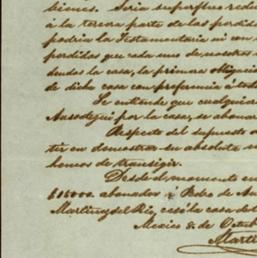 biones. Seria superfluo redu
á la tercera parte de las perdida
podria la Testamentaria ni con
perdidas que cada uno de nuestros
dendos la casa, la primera obligaci
de dicha casa con preferencia á tod
Se entiende que cualquiera
Ansoategui por la casa, se abonar
Respecto del supuesto
tir en demostrar su absoluta
hemos de transigir.
Desde el momento en
$15000. abonados á Pedro de An
Martinez del Rio, cesó la casa de
Mexico 8 de Octub
Marti